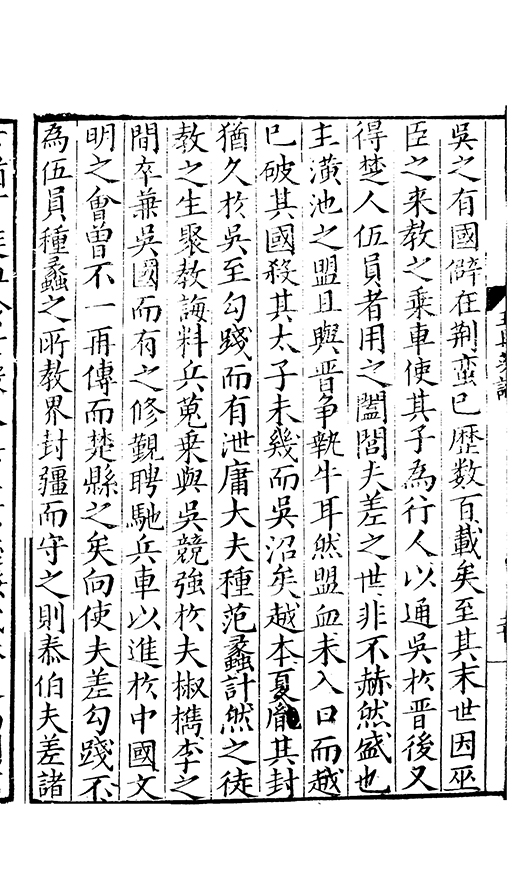 吳之有國僻在荆蛮已歷数百載矣至其末世因巫
臣之来教之乗車使其子為行人以通吳於晋後又
得楚人伍員者用之闔閭夫差之世非不赫然盛也
主潢池之盟且與晋争執牛耳然盟血未入口而越
已破其國殺其太子未幾而吳沼矣越本夏胤其封
猶久於吳至勾踐而有泄庸大夫種范蠡計然之徒
教之生聚教誨料兵蒐乗與吳競強於夫椒檇李之
間卒兼吳國而有之修覲聘馳兵車以進於中國文
明之會曽不一再傳而楚縣之矣向使夫差勾踐不
為伍員種蠡之所教界封彊而守之則泰伯夫差諸